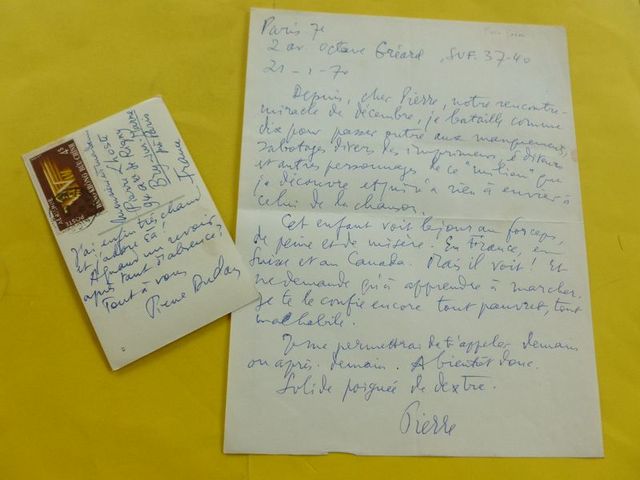 Paris 7e
2 av. Octave Gréard, SUF. 37-40
21-1-70
Depuis, cher Pierre, notre rencontre-
miracle de décembre, je bataille comme
dix pour passer outre aux manquements,
sabotages divers des imprimeurs, éditeurs
et autres personnages de ce "milieu" que
je découvre et qui n'a rien à envier à
celui de la chanson.
Cet enfant voit le jour au forceps,
de peine et de misère. En France, en
Suisse et au Canada. Mais il voit! Et
ne demande qu'à apprendre à marcher.
Je te le confie encore tout pauvret, tout
malhabile.
Je me permettrai de t'appeler demain
ou après-demain. A bientôt donc.
Solide poignée de dextre.
Pierre
Monsieur
Pierre
94
Paris
France
J'ai enfin très chaud
et j'adore ça!
A quand un revoir
après tant d'absence?
Tout à vous
Pierre